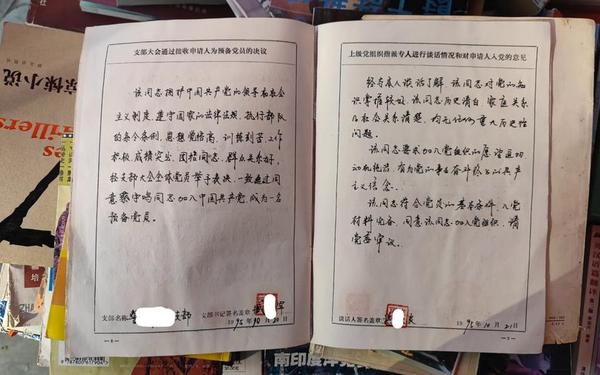 惊悚小说
支部大会通过接收申请人为预备党员的决议
该同志拥护中国共产党的领导和社会
主义制度，遵守国家的法律法规，执行部队
的条令条例，思想觉悟高，训练刻苦，工作
积极，成绩突出，团结同志，群众关系好，
经支部大会全体党员举手表决，一致通过同
意 同志加入中国共产党，成为一名
预备党员。
支部名称 支部
支部书记签名盖章
1995年10月20日
上级党组织指派专人进行谈话情况和对申请人入党的意见
经与本人谈话了解，该同志对党的知
识掌握较好，该同志历史清白，家庭关系
及社会关系清楚，均无任何重大历史性
问题。
该同志要求加入党组织的愿望迫切
动机纯洁，有为党的事业奋斗终身的共产
主义信念。
该同志符合党员的基本条件，入党
材料完备，同意该同志加入党组织，请
党委审议。
谈话人签名盖章
1995年10月21日
南印度洋